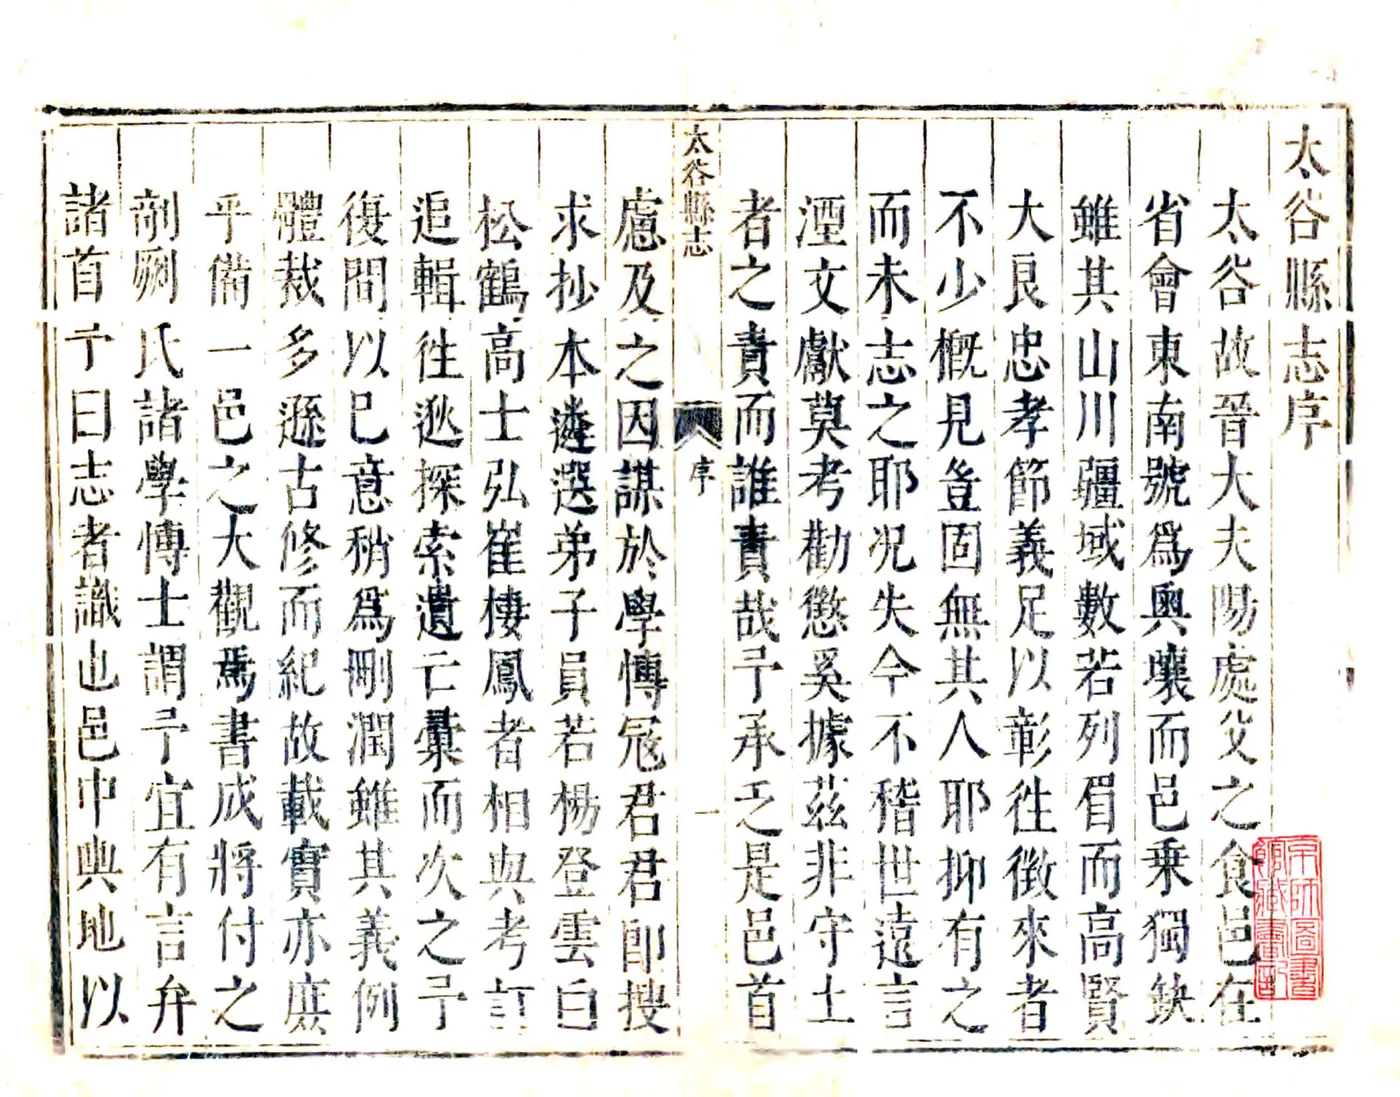 太谷縣志序
太谷故晉大夫陽處父之食邑在
省會東南號爲輿壤而邑乗獨缺
雖其山川疆域數若列眉而高賢
大良忠孝節義足以彰徃徵來者
不少概見豈固無其人耶抑有之
而未志之耶況失今不稽世遠言
湮文獻莫考勸懲奚據茲非守土
者之責而誰責哉予承乏是邑首
太谷縣志
序
一
慮及之因謀於學博冦君君即搜
求抄本遴選弟子員若楊登雲白
松鶴高士弘崔棲鳳者相與考訂
追輯徃逖探索遺亡彙而次之予
復間以己意稍爲刪潤雖其義例
體裁多遜古修而紀故載實亦庶
乎備一邑之大觀焉書成將付之
剞劂氏諸學博士謂予宜有言弁
諸首予曰志者識也邑中輿地以
京師圖書
館藏書印